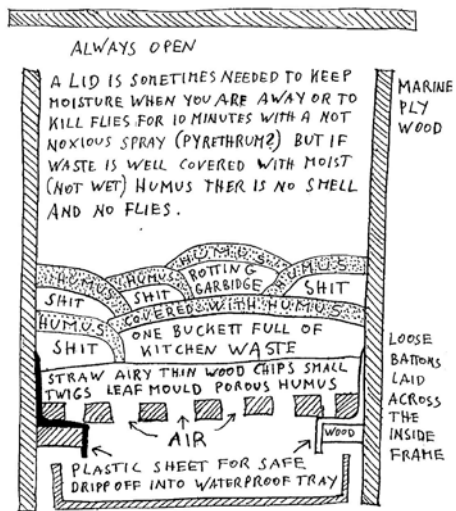 ALWAYS OPEN
A LID IS SOMETIMES NEEDED TO KEEP
MOISTURE WHEN YOU ARE AWAY OR TO
KILL FLIES FOR 10 MINUTES WITH A NOT
NOXIOUS SPRAY (PYRETHRUM?) BUT IF
WASTE IS WELL COVERED WITH MOIST
(NOT WET) HUMUS THER IS NO SMELL
AND NO FLIES.
MARINE
PLY
WOOD
HUMUS
HUMUS
HUMUS
HUMUS
ROTTING
GARBIDGE
SHIT
SHIT
SHIT
HUMUS
COVERED WITH HUMUS
SHIT
ONE BUCKETT FULL OF
KITCHEN WASTE
STRAW AIRY THIN WOOD CHIPS SMALL
TWIGS LEAF MOULD POROUS HUMUS
LOOSE
BATTONS
LAID
ACROSS
THE
INSIDE
FRAME
AIR
WOOD
PLASTIC SHEET FOR SAFE
DRIPP OFF INTO WATERPROOF TRAY